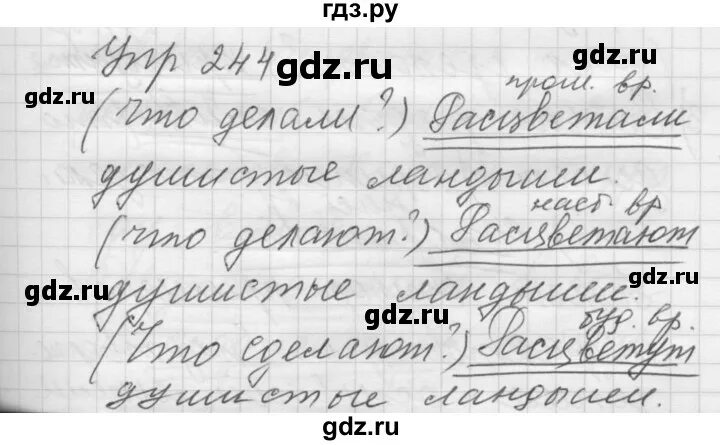 гдз.ру
Упр 244
gdz.ru gdz.ru gdz.ru
прош. вр.
(Что делали?) Расцветали
душистые ландыши.
gdz.ru gdz.ru
наст. вр
(Что делают?) Расцветают
gdz.ru gdz.ru
душистые ландыши.
gdz.ru
буд. вр.
(Что сделают?) Расцветут
душистые ландыши.
gdz.ru gdz.ru
гдз.ру